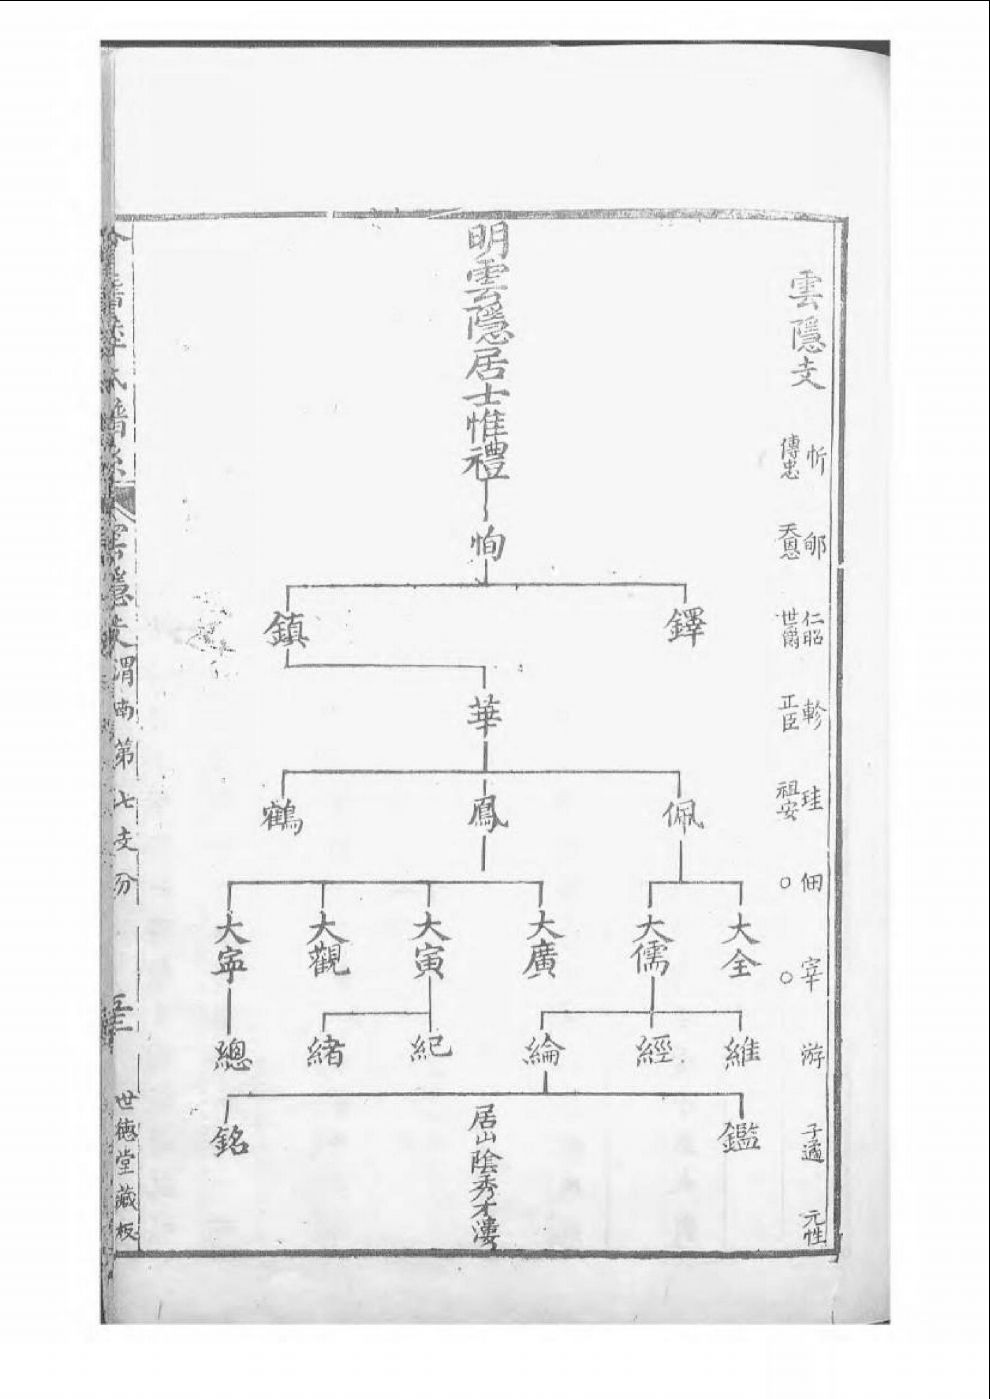 雲隱支
忻 郇 仁昭 軫 珪 佃 宰 游 子遹 元性
傳忠 天恩 世爵 正臣 祖安 ○ ○
明雲隱居士惟禮
恂
鐸 鎮
華
佩 鳳 鶴
大全 大儒 大廣 大寅 大觀 大寧
維 經 綸 紀 緒 總
鑑 銘
居山陰秀才漊
氏譜系 雲隱支 渭南第七支分
世德堂藏板